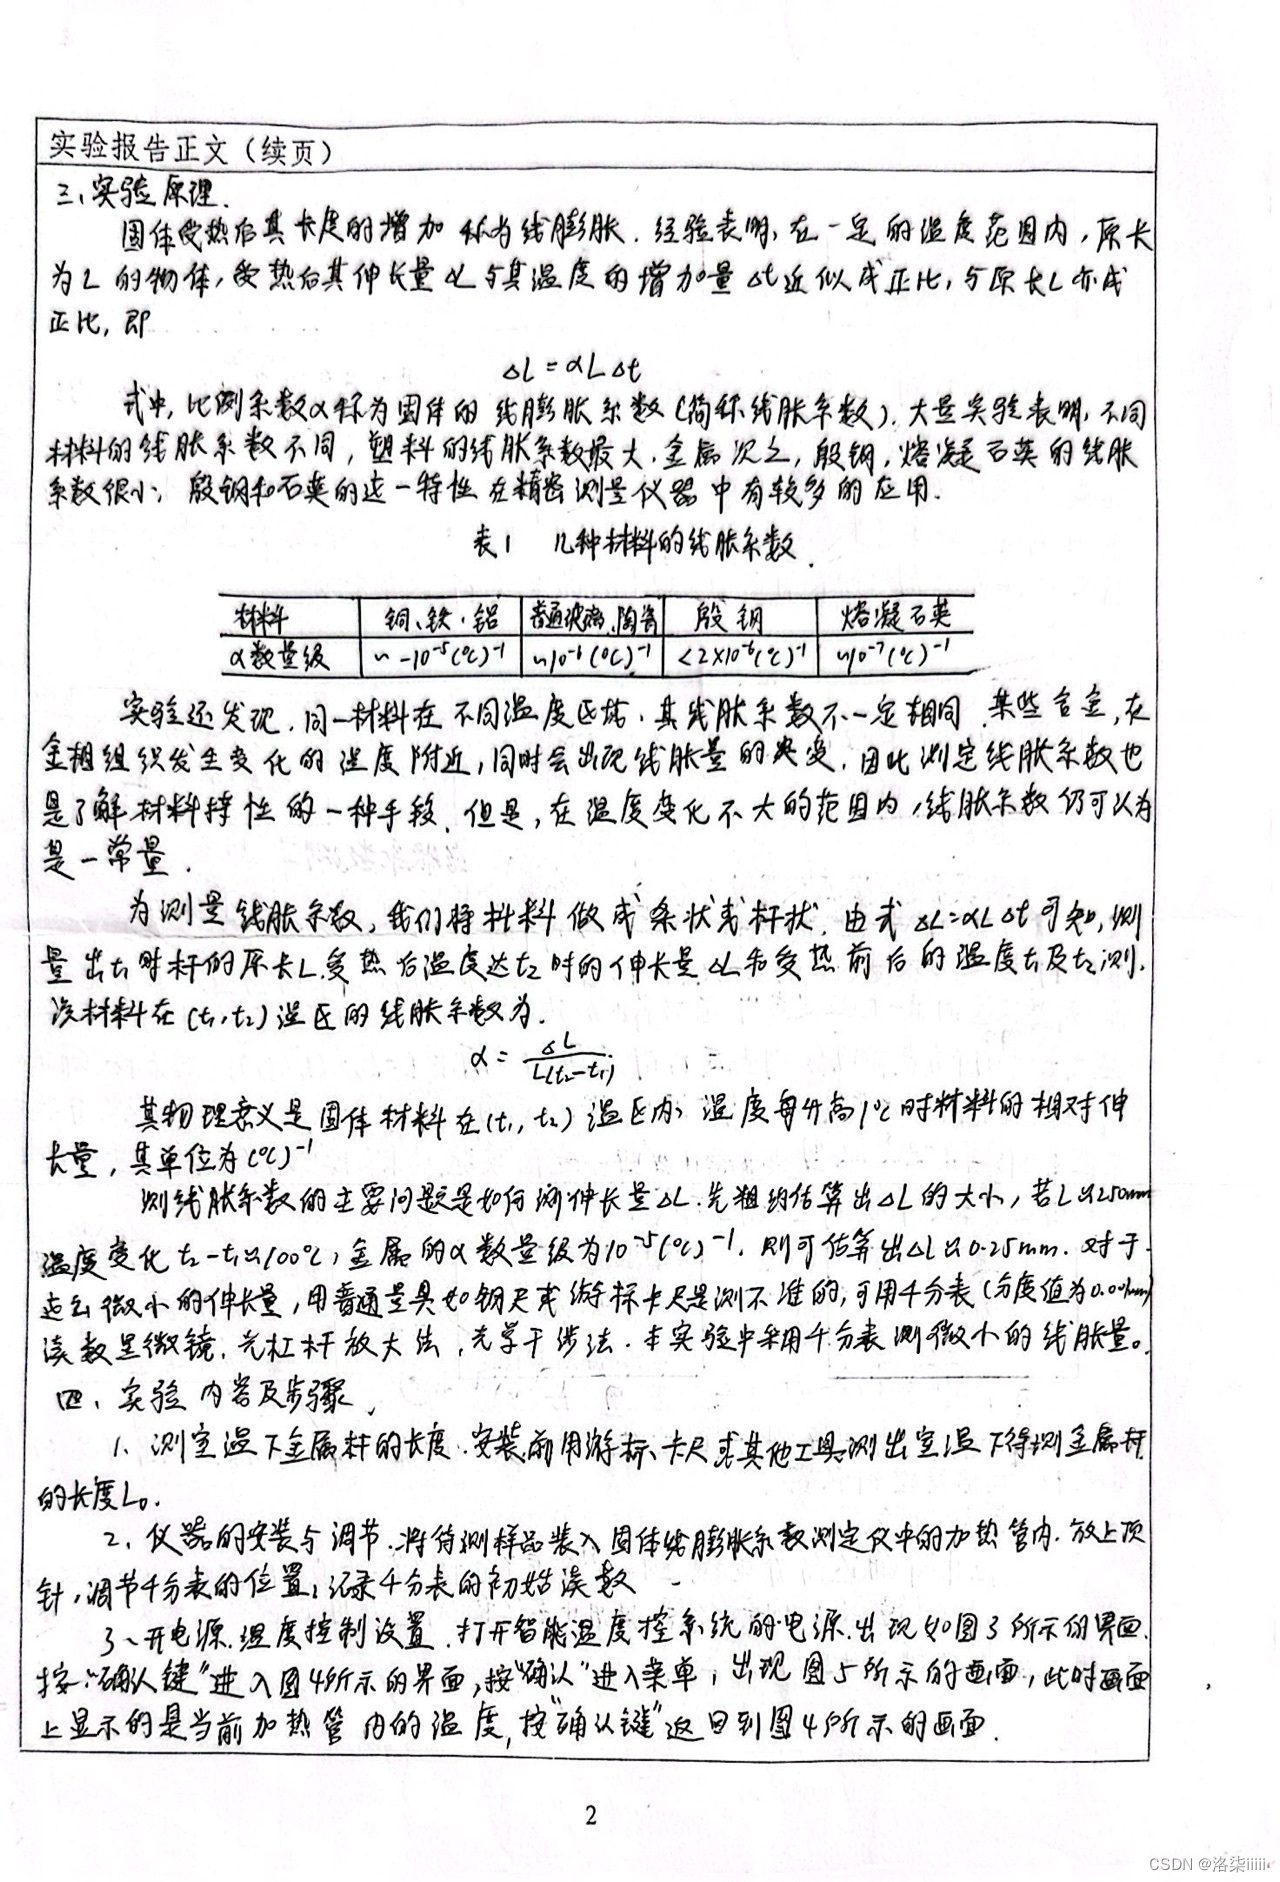 实验报告正文（续页）
三、实验原理.
固体受热后其长度的增加称为线膨胀. 经验表明, 在一定的温度范围内, 原长
为L的物体, 受热后其伸长量ΔL与其温度的增加量Δt近似成正比, 与原长L亦成
正比, 即
ΔL=αLΔt
式中, 比例系数α称为固体的线膨胀系数(简称线胀系数). 大量实验表明, 不同
材料的线胀系数不同, 塑料的线胀系数最大, 金属次之, 殷钢, 熔凝石英的线胀
系数很小; 殷钢和石英的这一特性在精密测量仪器中有较多的应用.
表1 几种材料的线胀系数.
材料 铜、铁、铝 普通玻璃、陶瓷 殷钢 熔凝石英
α数量级 ~-10⁻⁵(℃)⁻¹ ~10⁻⁶(℃)⁻¹ <2×10⁻⁶(℃)⁻¹ ~10⁻⁷(℃)⁻¹
实验还发现, 同一材料在不同温度区域, 其线胀系数不一定相同. 某些合金, 在
金相组织发生变化的温度附近, 同时会出现线胀量的突变. 因此测定线胀系数也
是了解材料特性的一种手段. 但是, 在温度变化不大的范围内, 线胀系数仍可以为
是一常量.
为测量线胀系数, 我们将材料做成条状或杆状. 由式ΔL=αLΔt可知, 测
量出t₁时杆的原长L、受热后温度达t₂时的伸长量ΔL和受热前后的温度t₁及t₂, 则.
该材料在(t₁, t₂)温区的线胀系数为.
α = ΔL / L(t₂-t₁)
其物理意义是固体材料在(t₁, t₂)温区内, 温度每升高1℃时材料的相对伸
长量, 其单位为(℃)⁻¹
测线胀系数的主要问题是如何测伸长量ΔL. 先粗约估算出ΔL的大小, 若L≈250mm
温度变化t₂-t₁≈100℃, 金属的α数量级为10⁻⁵(℃)⁻¹. 则可估算出ΔL≈0.25mm. 对于
这么微小的伸长量, 用普通量具如钢尺或游标卡尺是测不准的, 可用千分表(分度值为0.001mm)
读数显微镜, 光杠杆放大法, 光学干涉法. 本实验中采用千分表测微小的线胀量。
四、实验内容及步骤.
1、测室温下金属杆的长度. 安装前用游标卡尺或其他工具测出室温下待测金属杆
的长度L₀.
2、仪器的安装与调节. 将待测样品装入固体线膨胀系数测定仪中的加热管内. 放上顶
针, 调节千分表的位置, 记录千分表的初始读数
3、开电源. 温度控制设置. 打开智能温度控系统的电源. 出现如图3所示的界面.
按"确认键"进入图4所示的界面, 按"确认"进入菜单, 出现图5所示的画面, 此时画面
上显示的是当前加热管内的温度, 按"确认键"返回到图4所示的画面.
2
CSDN @洛柒iiiii